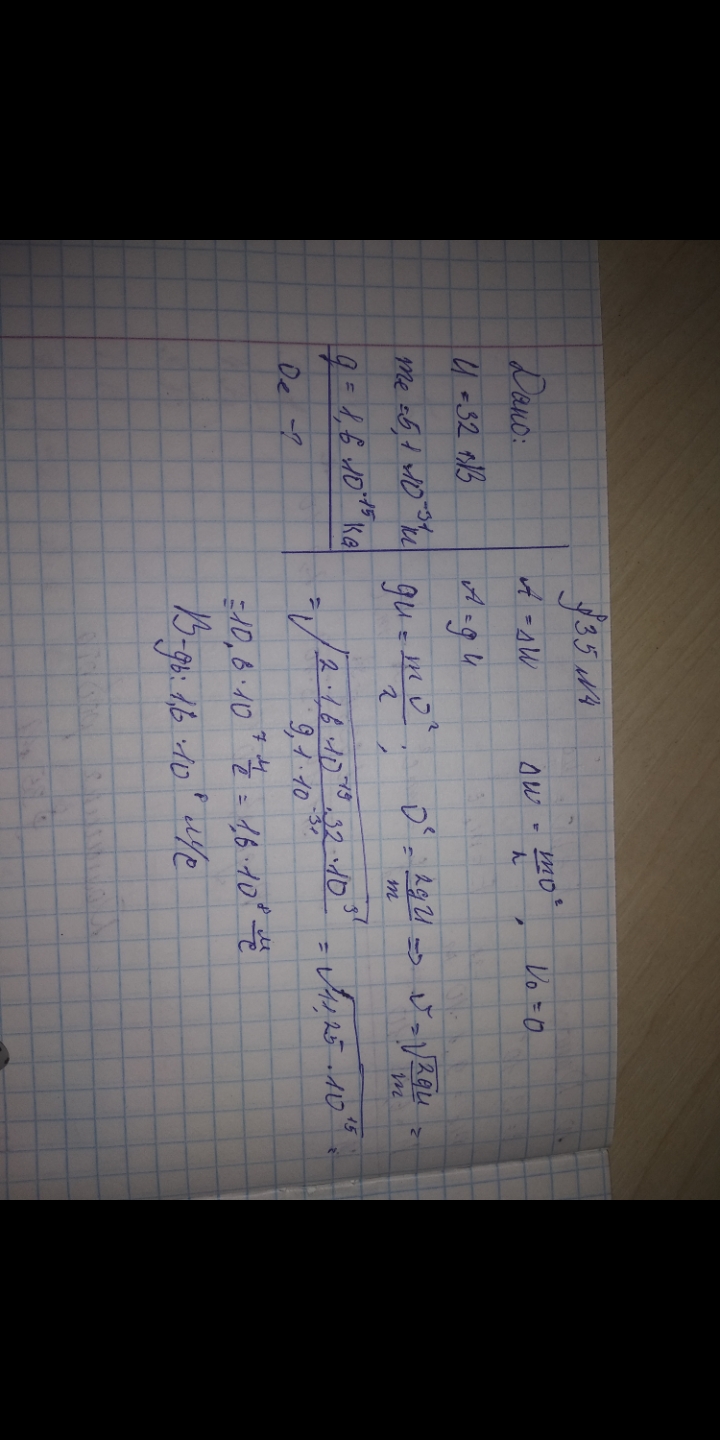 §35 №4
Дано:
U = 32 кВ
me = 9,1 · 10⁻³¹ кг
q = 1,6 · 10⁻¹⁹ Кл
υe - ?
A = ΔW ΔW = mυ²/2 , V₀ = 0
A = qU
qU = mυ²/2 ; υ² = 2qU/m => υ = √(2qU/m) =
= √(2 · 1,6 · 10⁻¹⁹ · 32 · 10³ / 9,1 · 10⁻³¹) = √(11,25 · 10¹⁵) =
= 10,6 · 10⁷ м/с = 1,6 · 10⁸ м/с
В-дь: 1,6 · 10⁸ м/с